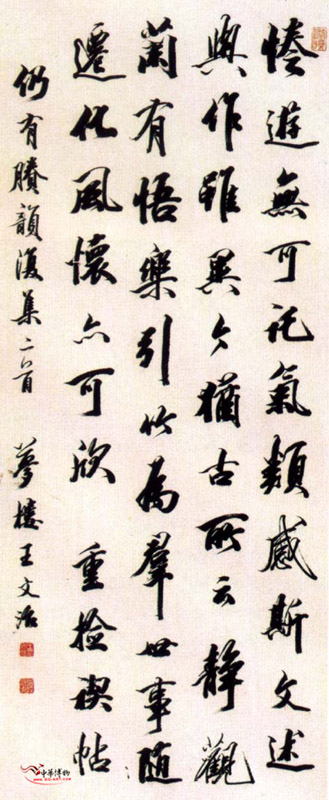 惓遊無可託氣類感斯文述
與作雖異今猶古所云靜觀
蘭有悟樂引竹為羣世事隨
遷化風懷亦可欣 重撿禊帖
仍有賸韻復集二首 夢樓王文治
中華博物